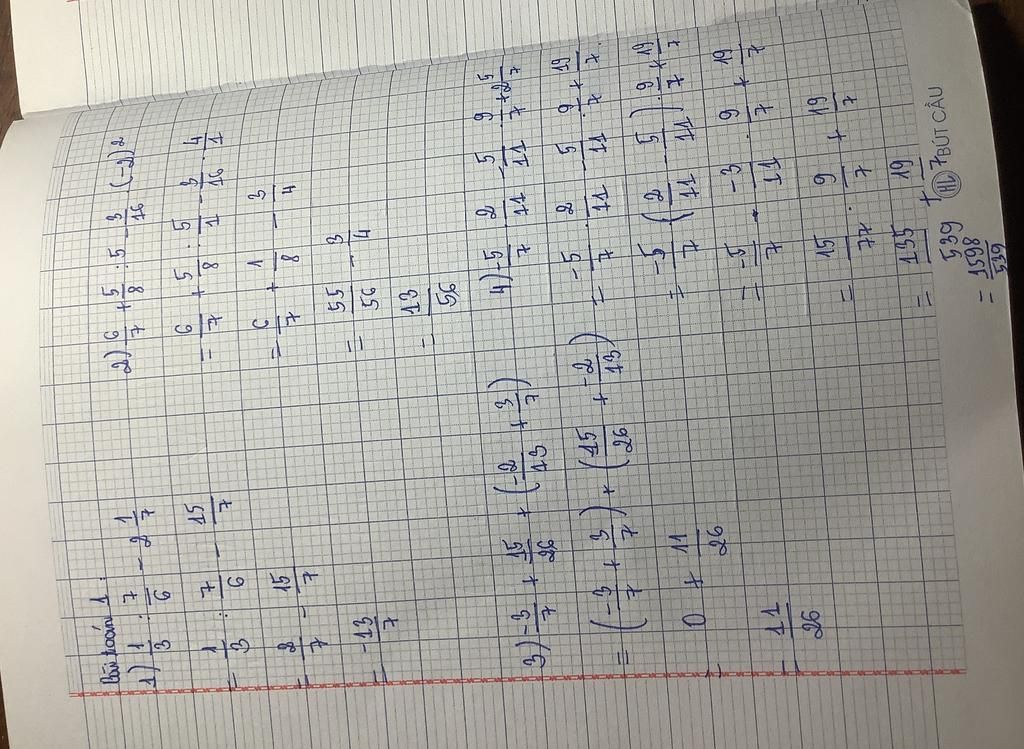 Bài toán 1:
1) 1/3 : 7/6 - 2 1/7
= 1/3 : 7/6 - 15/7
= 2/7 - 15/7
= -13/7
2) 6/7 + 5/8 : 5 - 3/16 . (-2)²
= 6/7 + 5/8 : 5/1 - 3/16 . 4/1
= 6/7 + 1/8 - 3/4
= 55/56 - 3/4
= 13/56
3) -3/7 + 15/26 + (-2/13 + 3/7)
= (-3/7 + 3/7) + (15/26 + -2/13)
= 0 + 11/26
= 11/26
4) -5/7 . 2/11 - 5/11 . 9/7 + 2 5/7
= -5/7 . 2/11 - 5/11 . 9/7 + 19/7
= -5/7 . (2/11 - 5/11) . 9/7 + 19/7
= -5/7 . -3/11 . 9/7 + 19/7
= 15/77 . 9/7 + 19/7
= 135/539 + 19/7
= 1598/539
BÚT CÂU